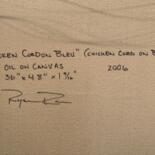 KEN CORDON BLEU" (CHICKEN CORDON B
OIL ON CANVAS 2006
36" x 48" x 1 5/8"